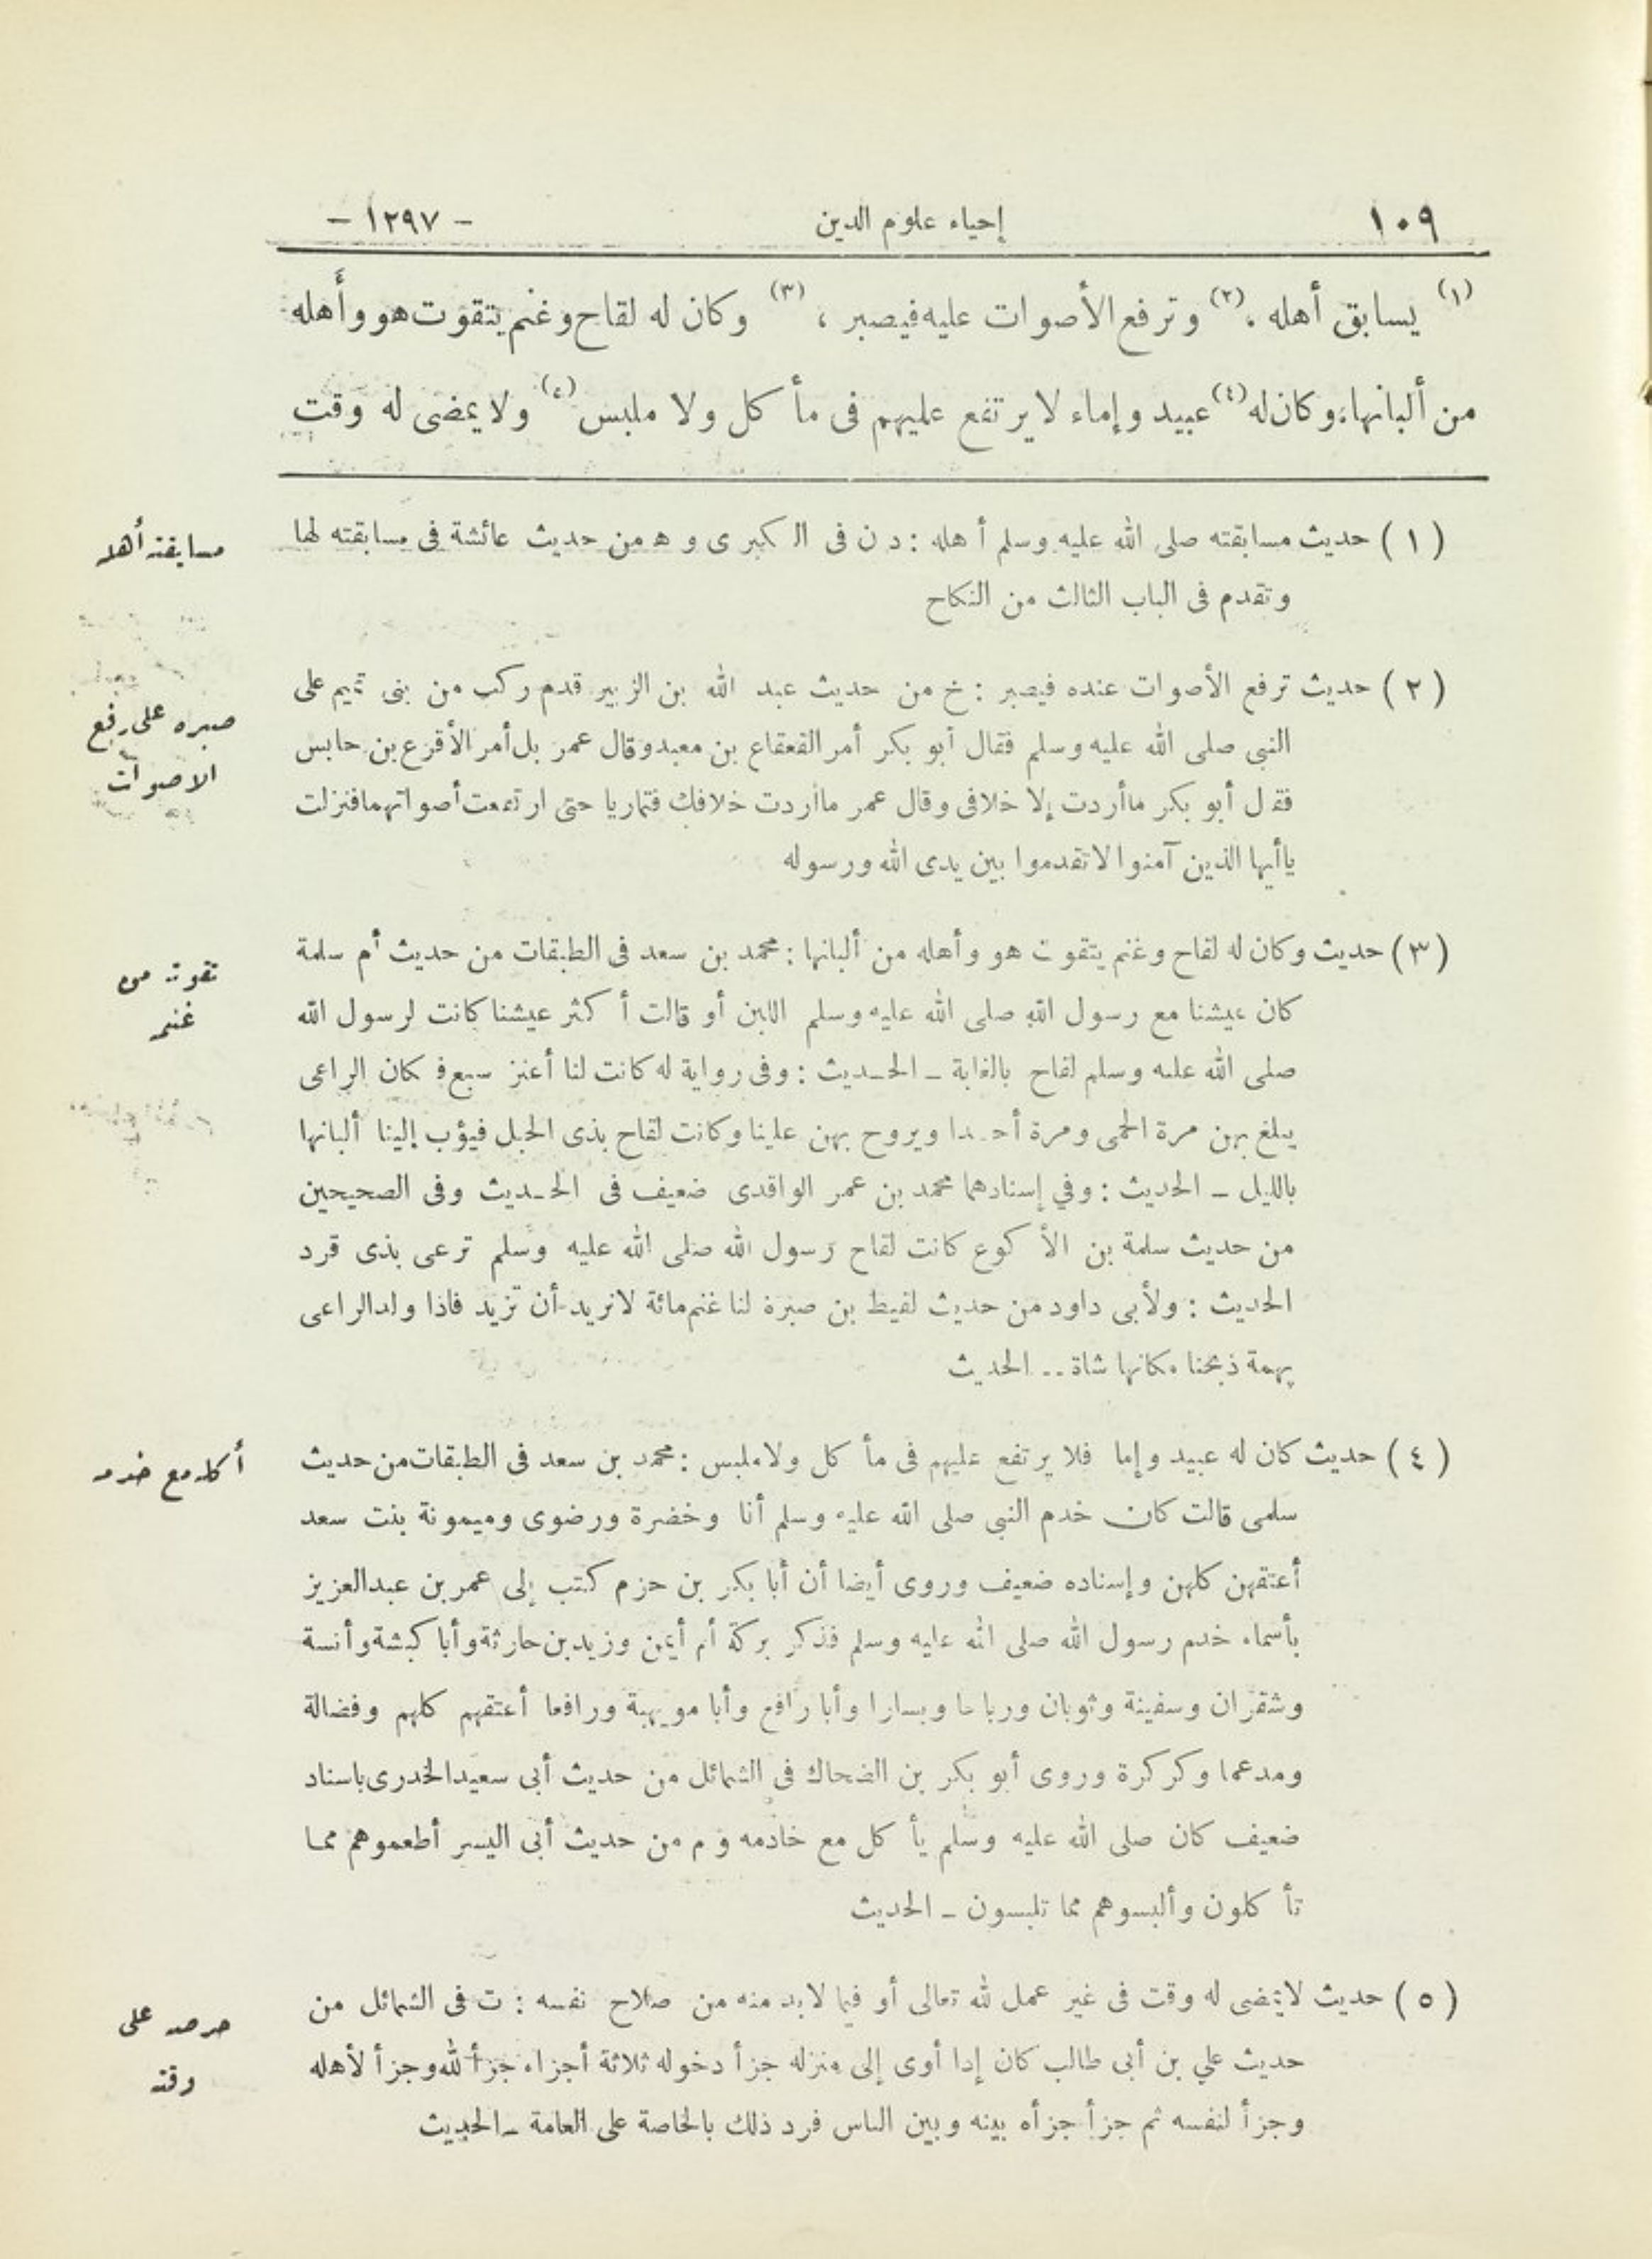 ١٠٩ إحياء علوم الدين - ١٢٩٧ -
(١) يسابق أهله ، (٢) وترفع الأصوات عليه فيصبر ، (٣) وكان له لقاح وغنم يتقوت هو وأهله
من ألبانها، وكان له (٤) عبيد وإماء لا يرتفع عليهم فى مأكل ولا ملبس (٥) ولا يمضى له وقت
(١) حديث مسابقته صلى الله عليه وسلم أهله : د ن فى الكبرى و ه من حديث عائشة فى مسابقته لها
وتقدم فى الباب الثالث من النكاح
مسابقته أهله
(٢) حديث ترفع الأصوات عنده فيصبر : خ من حديث عبد الله بن الزبير قدم ركب من بنى تميم على
النبى صلى الله عليه وسلم فقال أبو بكر أمر القعقاع بن معبد وقال عمر بل أمر الأقرع بن حابس
فقال أبو بكر ما أردت إلا خلافى وقال عمر ما أردت خلافك فتماريا حتى ارتفعت أصواتهما فنزلت
يا أيها الذين آمنوا لا تقدموا بين يدى الله ورسوله
صبره على رفع
الاصوات
(٣) حديث وكان له لقاح وغنم يتقوت هو وأهله من ألبانها : محمد بن سعد فى الطبقات من حديث أم سلمة
كان عيشنا مع رسول الله صلى الله عليه وسلم اللبن أو قالت أكثر عيشنا كانت لرسول الله
صلى الله عليه وسلم لقاح بالغابة ـ الحديث : وفى رواية له كانت لنا أعنز سبع فكان الراعى
يبلغ بهن مرة الحمى ومرة أحدا ويروح بهن علينا وكانت لقاح بذى الجبل فيؤب إلينا ألبانها
بالليل ـ الحديث : وفي إسنادهما محمد بن عمر الواقدى ضعيف فى الحديث وفى الصحيحين
من حديث سلمة بن الأكوع كانت لقاح رسول الله صلى الله عليه وسلم ترعى بذى قرد
الحديث : ولأبى داود من حديث لقيط بن صبرة لنا غنم مائة لا نريد أن تزيد فاذا ولد الراعى
بهمة ذبحنا مكانها شاة .. الحديث
تقوته من
غنمه
(٤) حديث كان له عبيد وإما فلا يرتفع عليهم فى مأكل ولا ملبس : محمد بن سعد فى الطبقات من حديث
سلمى قالت كان خدم النبى صلى الله عليه وسلم أنا وخضرة ورضوى وميمونة بنت سعد
أعتقهن كلهن وإسناده ضعيف وروى أيضا أن أبا بكر بن حزم كتب إلى عمر بن عبد العزيز
بأسماء خدم رسول الله صلى الله عليه وسلم فذكر بركة أم أيمن وزيد بن حارثة وأبا كبشة وأنسة
وشقران وسفينة وثوبان ورباحا ويسارا وأبا رافع وأبا مويهبة ورافعا أعتقهم كلهم وفضالة
ومدعما وكركرة وروى أبو بكر بن الضحاك فى الشمائل من حديث أبى سعيد الخدرى باسناد
ضعيف كان صلى الله عليه وسلم يأكل مع خادمه و م من حديث أبى اليسر أطعموهم مما
تأكلون وألبسوهم مما تلبسون ـ الحديث
أكله مع خدمه
(٥) حديث لا يمضى له وقت فى غير عمل لله تعالى أو فيما لا بد منه من صلاح نفسه : ت فى الشمائل من
حديث علي بن أبى طالب كان إذا أوى إلى منزله جزأ دخوله ثلاثة أجزاء جزأ لله وجزأ لأهله
وجزأ لنفسه ثم جزأ جزأه بينه وبين الناس فرد ذلك بالخاصة على العامة ـ الحديث
حرصه على
وقته